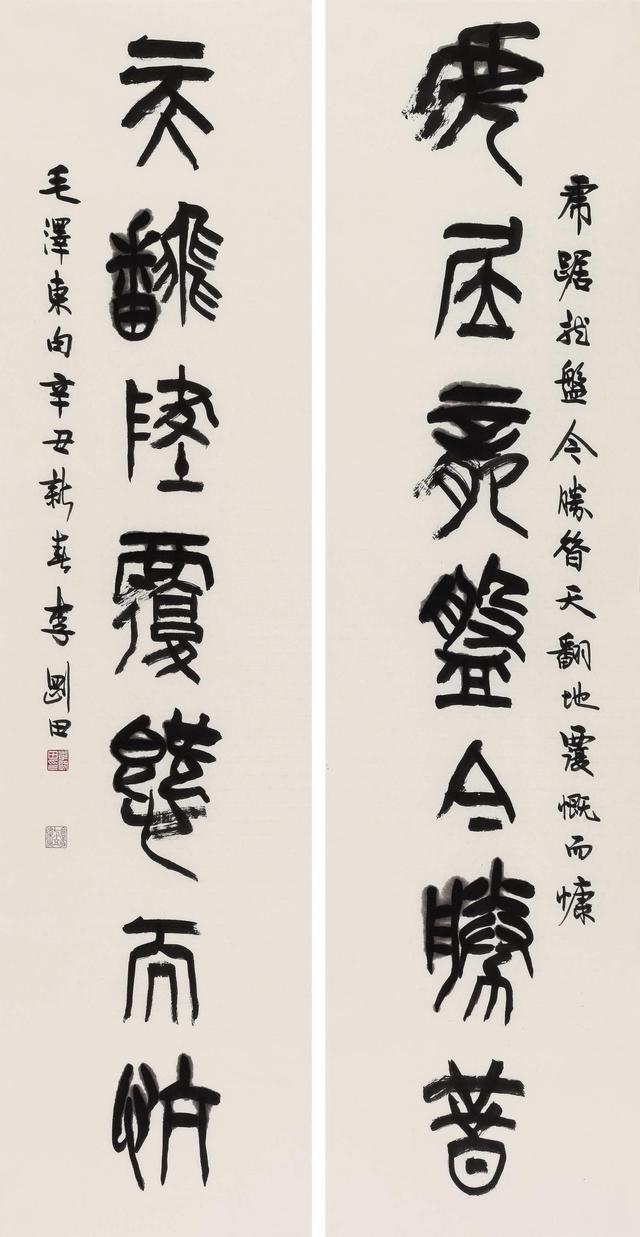 虎踞龙盤今勝昔天翻地覆慨而慷
虎居龍盤今勝昔
天翻墬覆慨而忼
毛澤東句辛丑新春李剛田